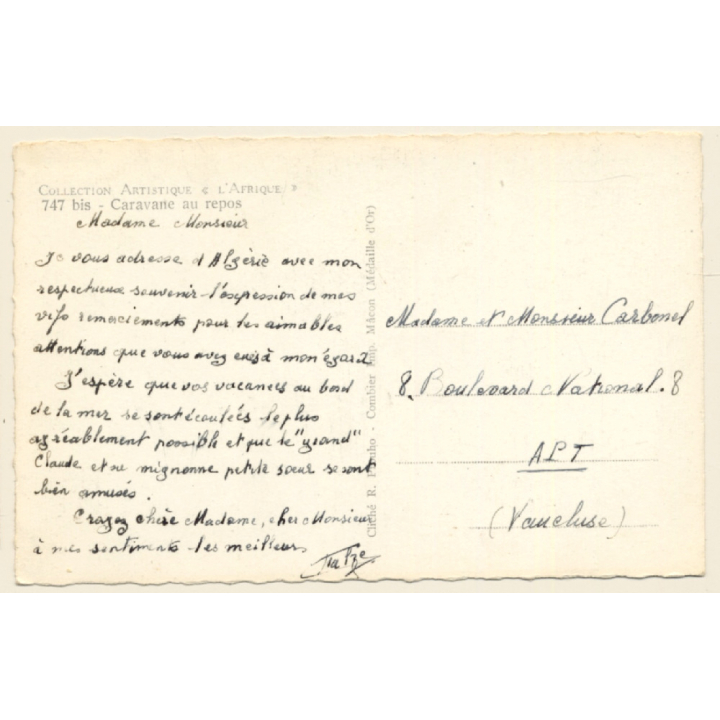 COLLECTION ARTISTIQUE « L'AFRIQUE »
747 bis - Caravane au repos
Madame Monsieur
Je vous adresse d'Algérie avec mon
respectueux souvenir l'expression de mes
vifs remerciements pour les aimables
attentions que vous avez eues à mon égard.
J'espère que vos vacances au bord
de la mer se sont écoulées le plus
agréablement possible et que le "grand"
Claude et sa mignonne petite sœur se sont
bien amusés.
Croyez chère Madame, cher Monsieur
à mes sentiments les meilleurs
Cliché R. - Combier Imp. Mâcon (Médaille d'Or)
Madame et Monsieur Carbonel
8, Boulevard National. 8
APT
(Vaucluse)